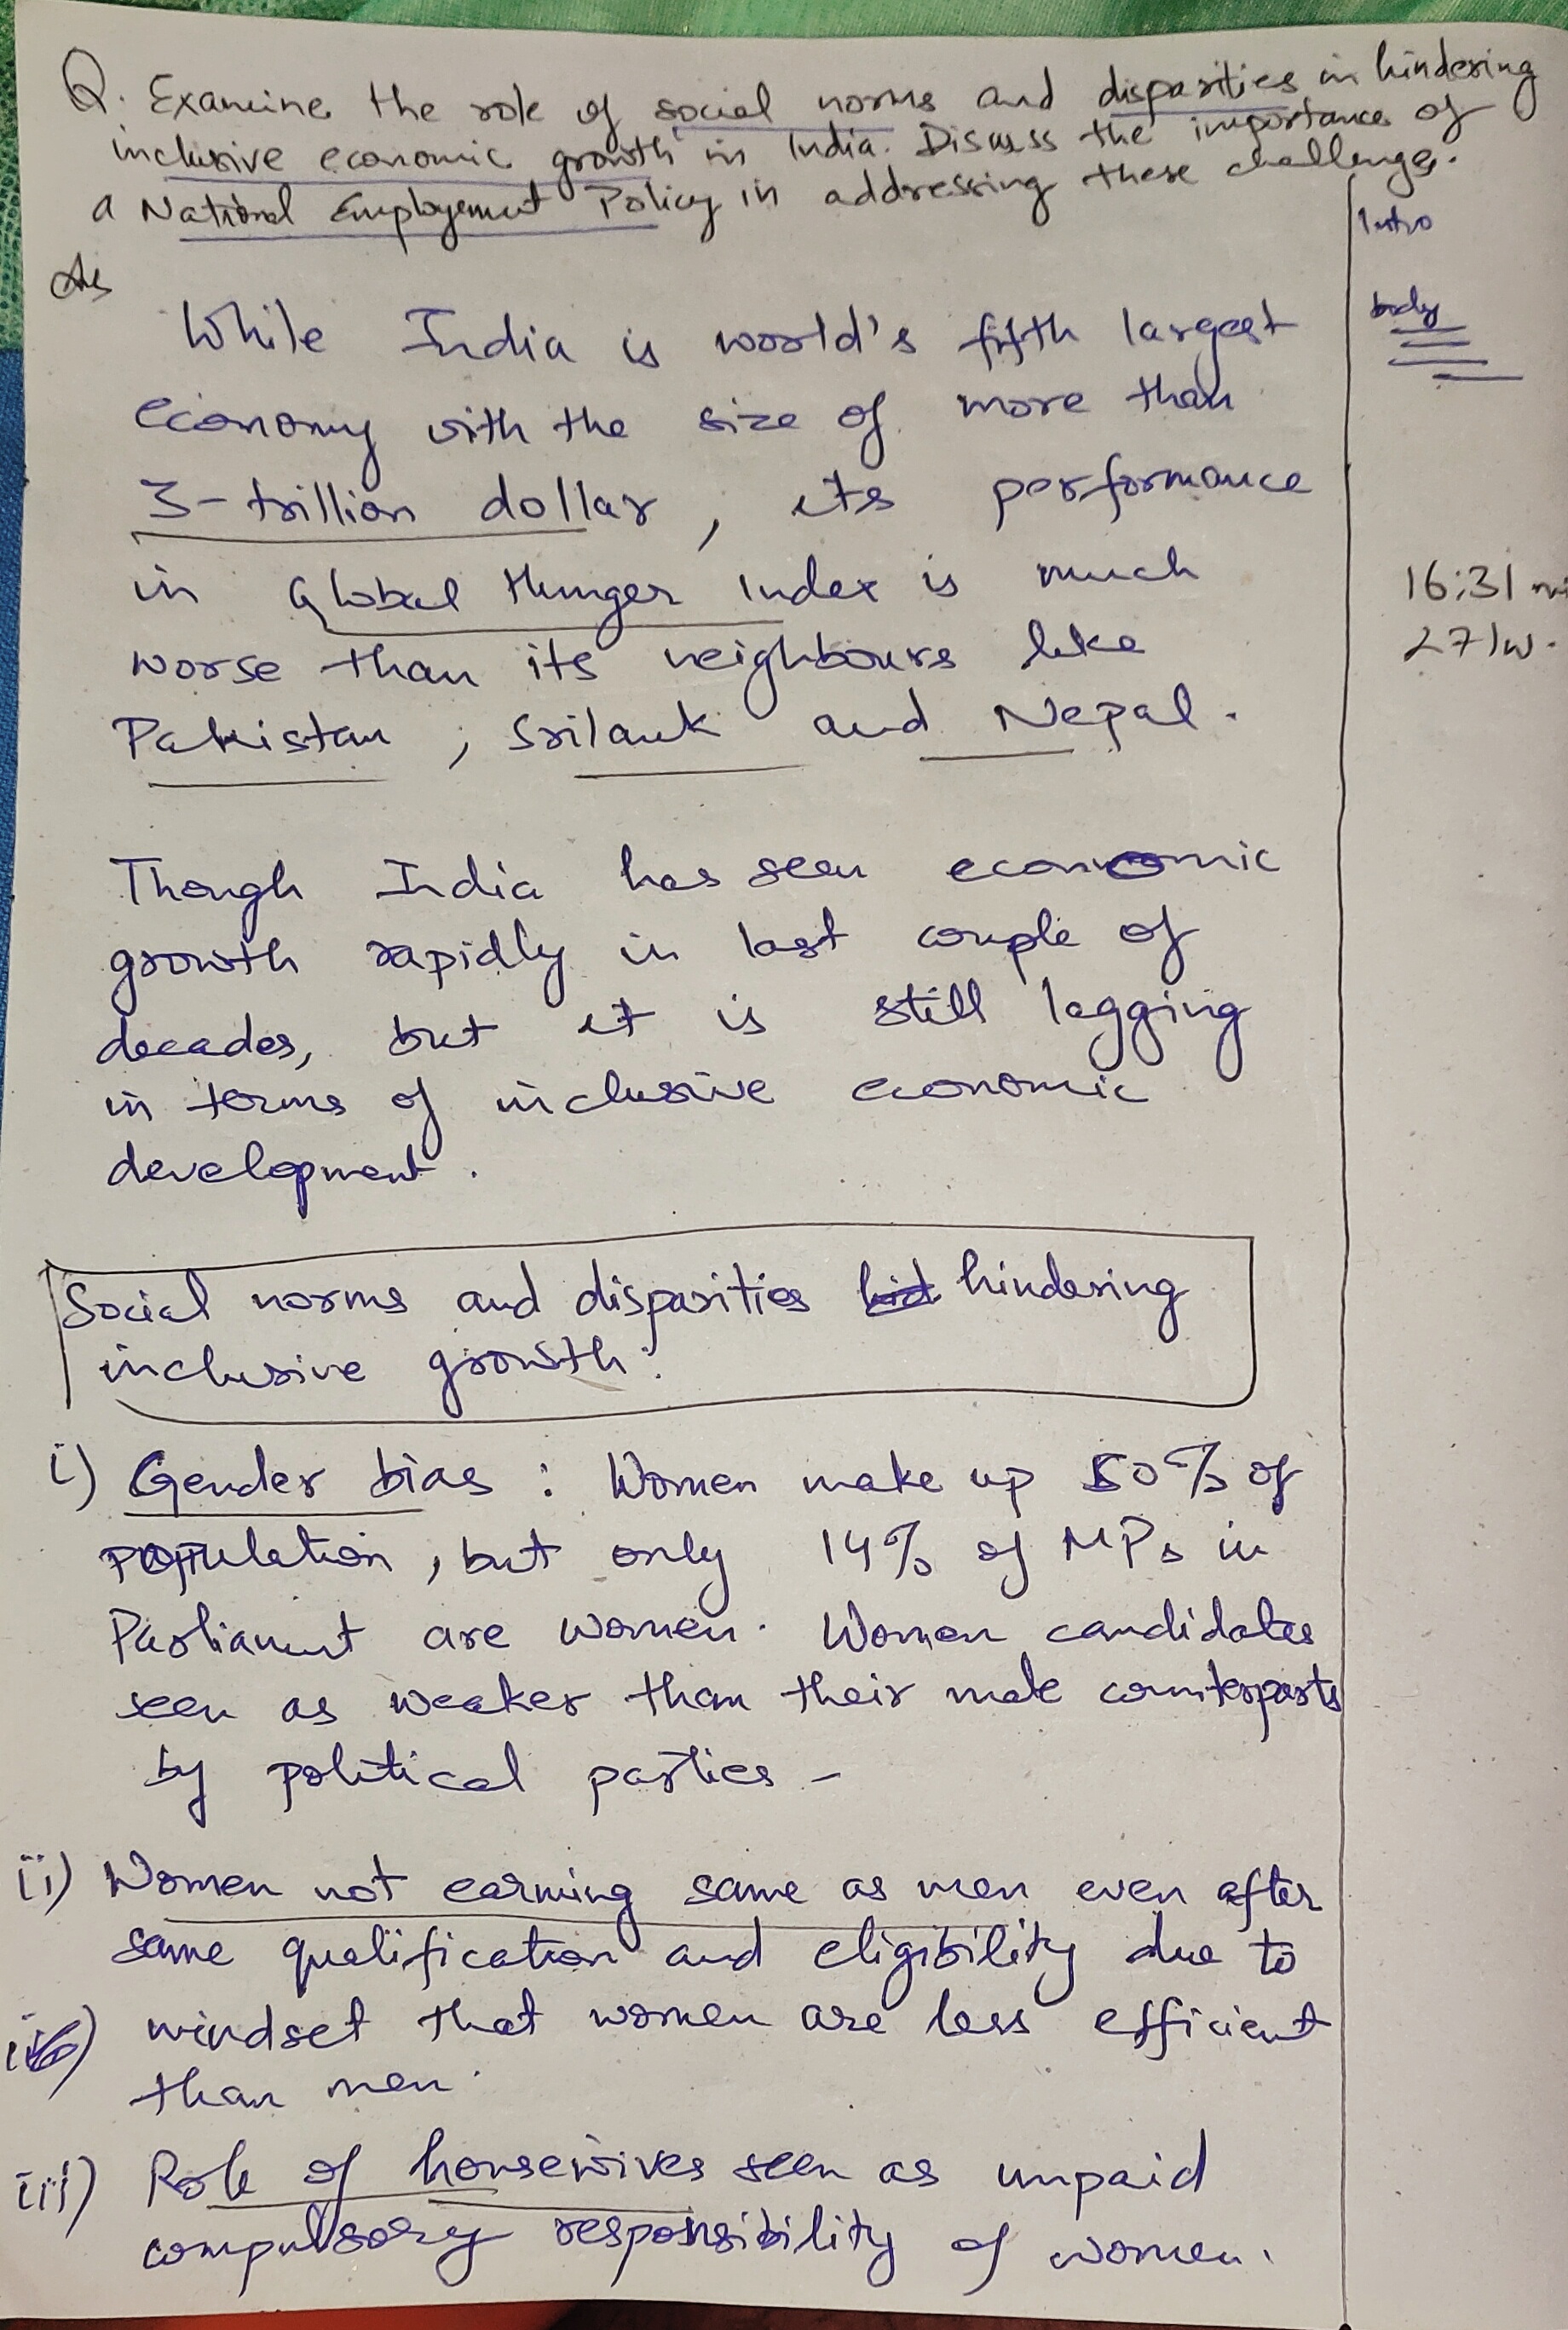 Q. Examine the role of social norms and disparities in hindering
inclusive economic growth in India. Discuss the importance of
a National Employement Policy in addressing these challenges.
Intro
body
16:31
271w.
While India is world's fifth largest
economy with the size of more than
3-trillion dollar, its performance
in Global Hunger Index is much
worse than its neighbours like
Pakistan, Srilank and Nepal.
Though India has seen economic
growth rapidly in last couple of
decades, but it is still lagging
in terms of inclusive economic
development.
Social norms and disparities hindering
inclusive growth:
i) Gender bias : Women make up 50% of
population, but only 14% of MPs in
Parliament are women. Women candidates
seen as weaker than their male counterparts
by political parties -
ii) Women not earning same as men even after
same qualification and eligibility due to
mindset that women are less efficient
than men.
iii) Role of housewives seen as unpaid
compulsory responsibility of women.